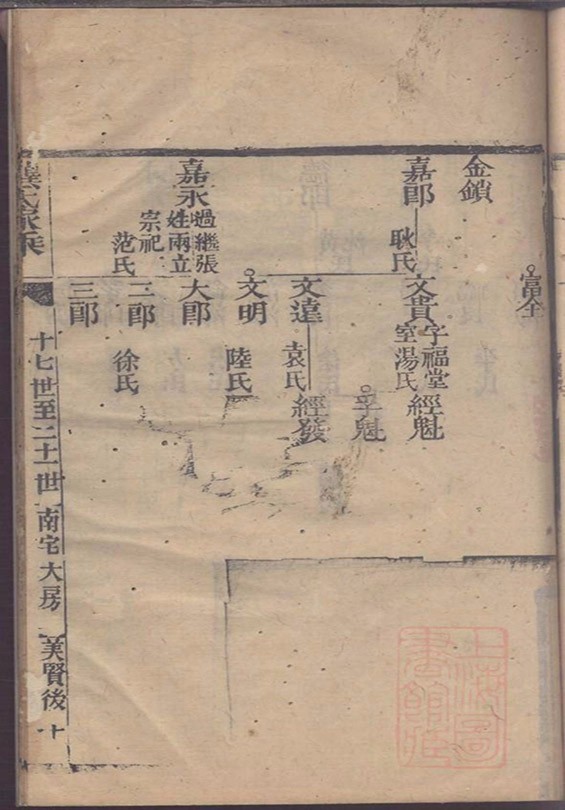 富全
金鎖
嘉郎
耿氏
文貴
字福堂
室湯氏
經魁
孚魁
文達
袁氏
經發
文明
陸氏
嘉永
過繼張
姓兩立
宗祀
范氏
大郎
二郎
徐氏
三郎
龔氏家乘
十七世至二十一世
南宅大房
美賢後
十
上海圖書館藏